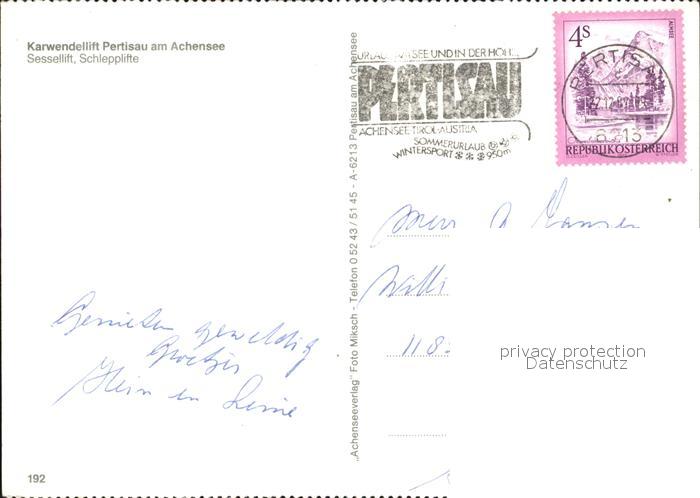 Karwendellift Pertisau am Achensee
Sessellift, Schlepplifte
Genieten geweldig
Groetjes
Hein en
192
„Achenseeverlag" Foto Miksch - Telefon 0 52 43 / 51 45 - A-6213 Pertisau am Achensee
URLAUB AM SEE UND IN DER HÖHE
PERTISAU
ACHENSEE TIROL-AUSTRIA
SOMMERURLAUB
WINTERSPORT 950m
4S
ALMSEE
PERTISAU
6213
REPUBLIK ÖSTERREICH
118
privacy protection
Datenschutz